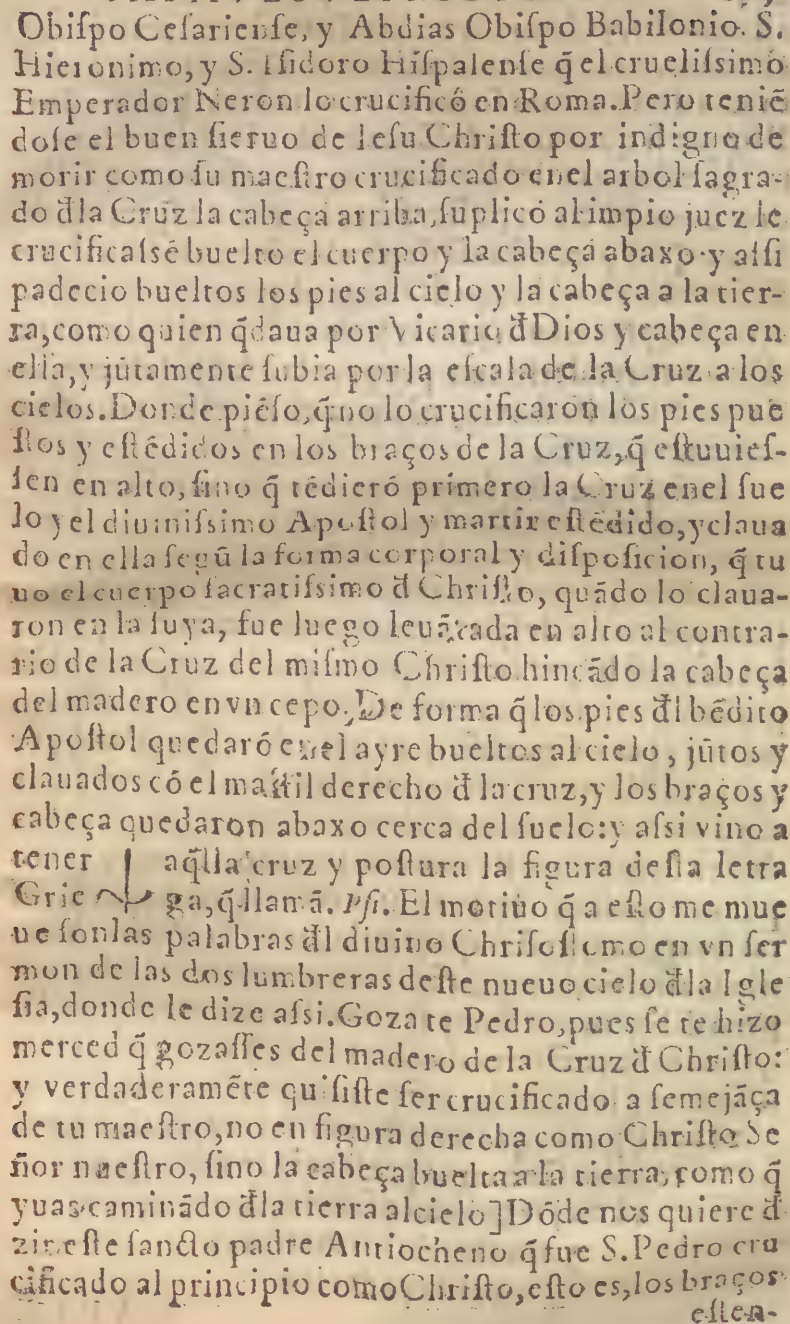 Obiſpo Ceſarienſe, y Abdias Obiſpo Babilonio. S.
Hieronimo, y S. Iſidoro Hiſpalenſe q̃ el crueliſsimo
Emperador Neron lo crucificó en Roma. Pero teniẽ
doſe el buen ſieruo de Ieſu Chriſto por indigno de
morir como ſu maeſtro crucificado enel arbol ſagra-
do d̃la Cruz la cabeça arriba, ſuplicó al impio juez le
crucificaſsẽ buelto el cuerpo y la cabeça abaxo y aſſi
padecio bueltos los pies al cielo y la cabeça a la tier-
ra, como quien q̃daua por Vicario d̃ Dios y cabeça en
ella, y jũtamente ſubia por la eſcala de la Cruz a los
cielos. Donde piẽſo, q̃ no lo crucificaron los pies pue
ſtos y eſtẽdidos en los braços de la Cruz, q̃ eſtuuieſ-
ſen en alto, ſino q̃ tẽdierõ primero la Cruz enel ſue
lo y el diuiniſsimo Apoſtol y martir eſtẽdido, y claua
do en ella ſegũ la forma corporal y diſpoſicion, q̃ tu
uo el cuerpo ſacratiſsimo d̃ Chriſto, quãdo lo claua-
ron en la ſuya, fue luego leuãtada en alto al contra-
rio de la Cruz del miſmo Chriſto hincãdo la cabeça
del madero en vn cepo. De forma q̃ los pies d̃l bẽdito
Apoſtol quedarõ enel ayre bueltos al cielo, jũtos y
clauados cõ el maſtil derecho d̃ la cruz, y los braços y
cabeça quedaron abaxo cerca del ſuelo: y aſsi vino a
tener aq̃lla cruz y poſtura la figura deſta letra
Grie ga, q̃ llamã. Pſi. El motiuo q̃ a eſto me mue
ue ſon las palabras d̃l diuino Chriſoſtomo en vn ſer
mon de las dos lumbreras deſte nueuo cielo d̃la Igle
ſia, donde le dize aſsi. Goza te Pedro, pues ſe te hizo
merced q̃ gozaſſes del madero de la Cruz d̃ Chriſto:
y verdaderamẽte quiſiſte ſer crucificado a ſemejãça
de tu maeſtro, no en figura derecha como Chriſto Se
ñor nueſtro, ſino la cabeça buelta a la tierra, como q̃
yuas caminãdo d̃la tierra al cielo] Dõde nos quiere d̃
zir eſte ſancto padre Antiocheno q̃ fue S. Pedro cru
cificado al principio como Chriſto, eſto es, los braços
eſten-